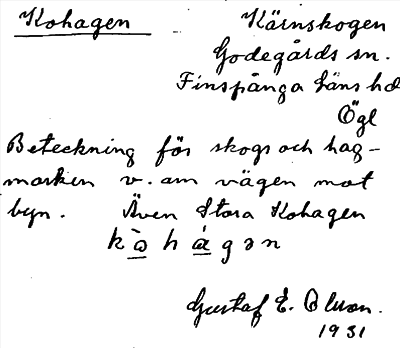 Kohagen Kärnskogen
Godegårds sn.
Finspånga läns hd
Ögl
Beteckning för skogs och hag-
marken v. om vägen mot
byn. Även Stora Kohagen
k ò h á g ə n
Gustaf E. Olsson.
1931